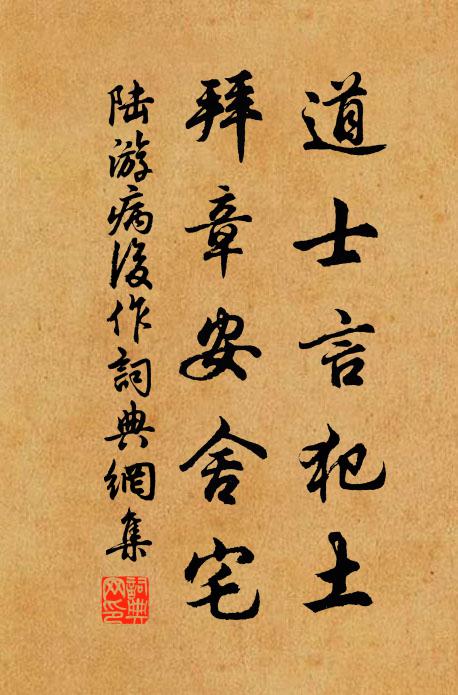 道士言犯土
拜章安舍宅
陆游病後作詞典網集
詞典网印